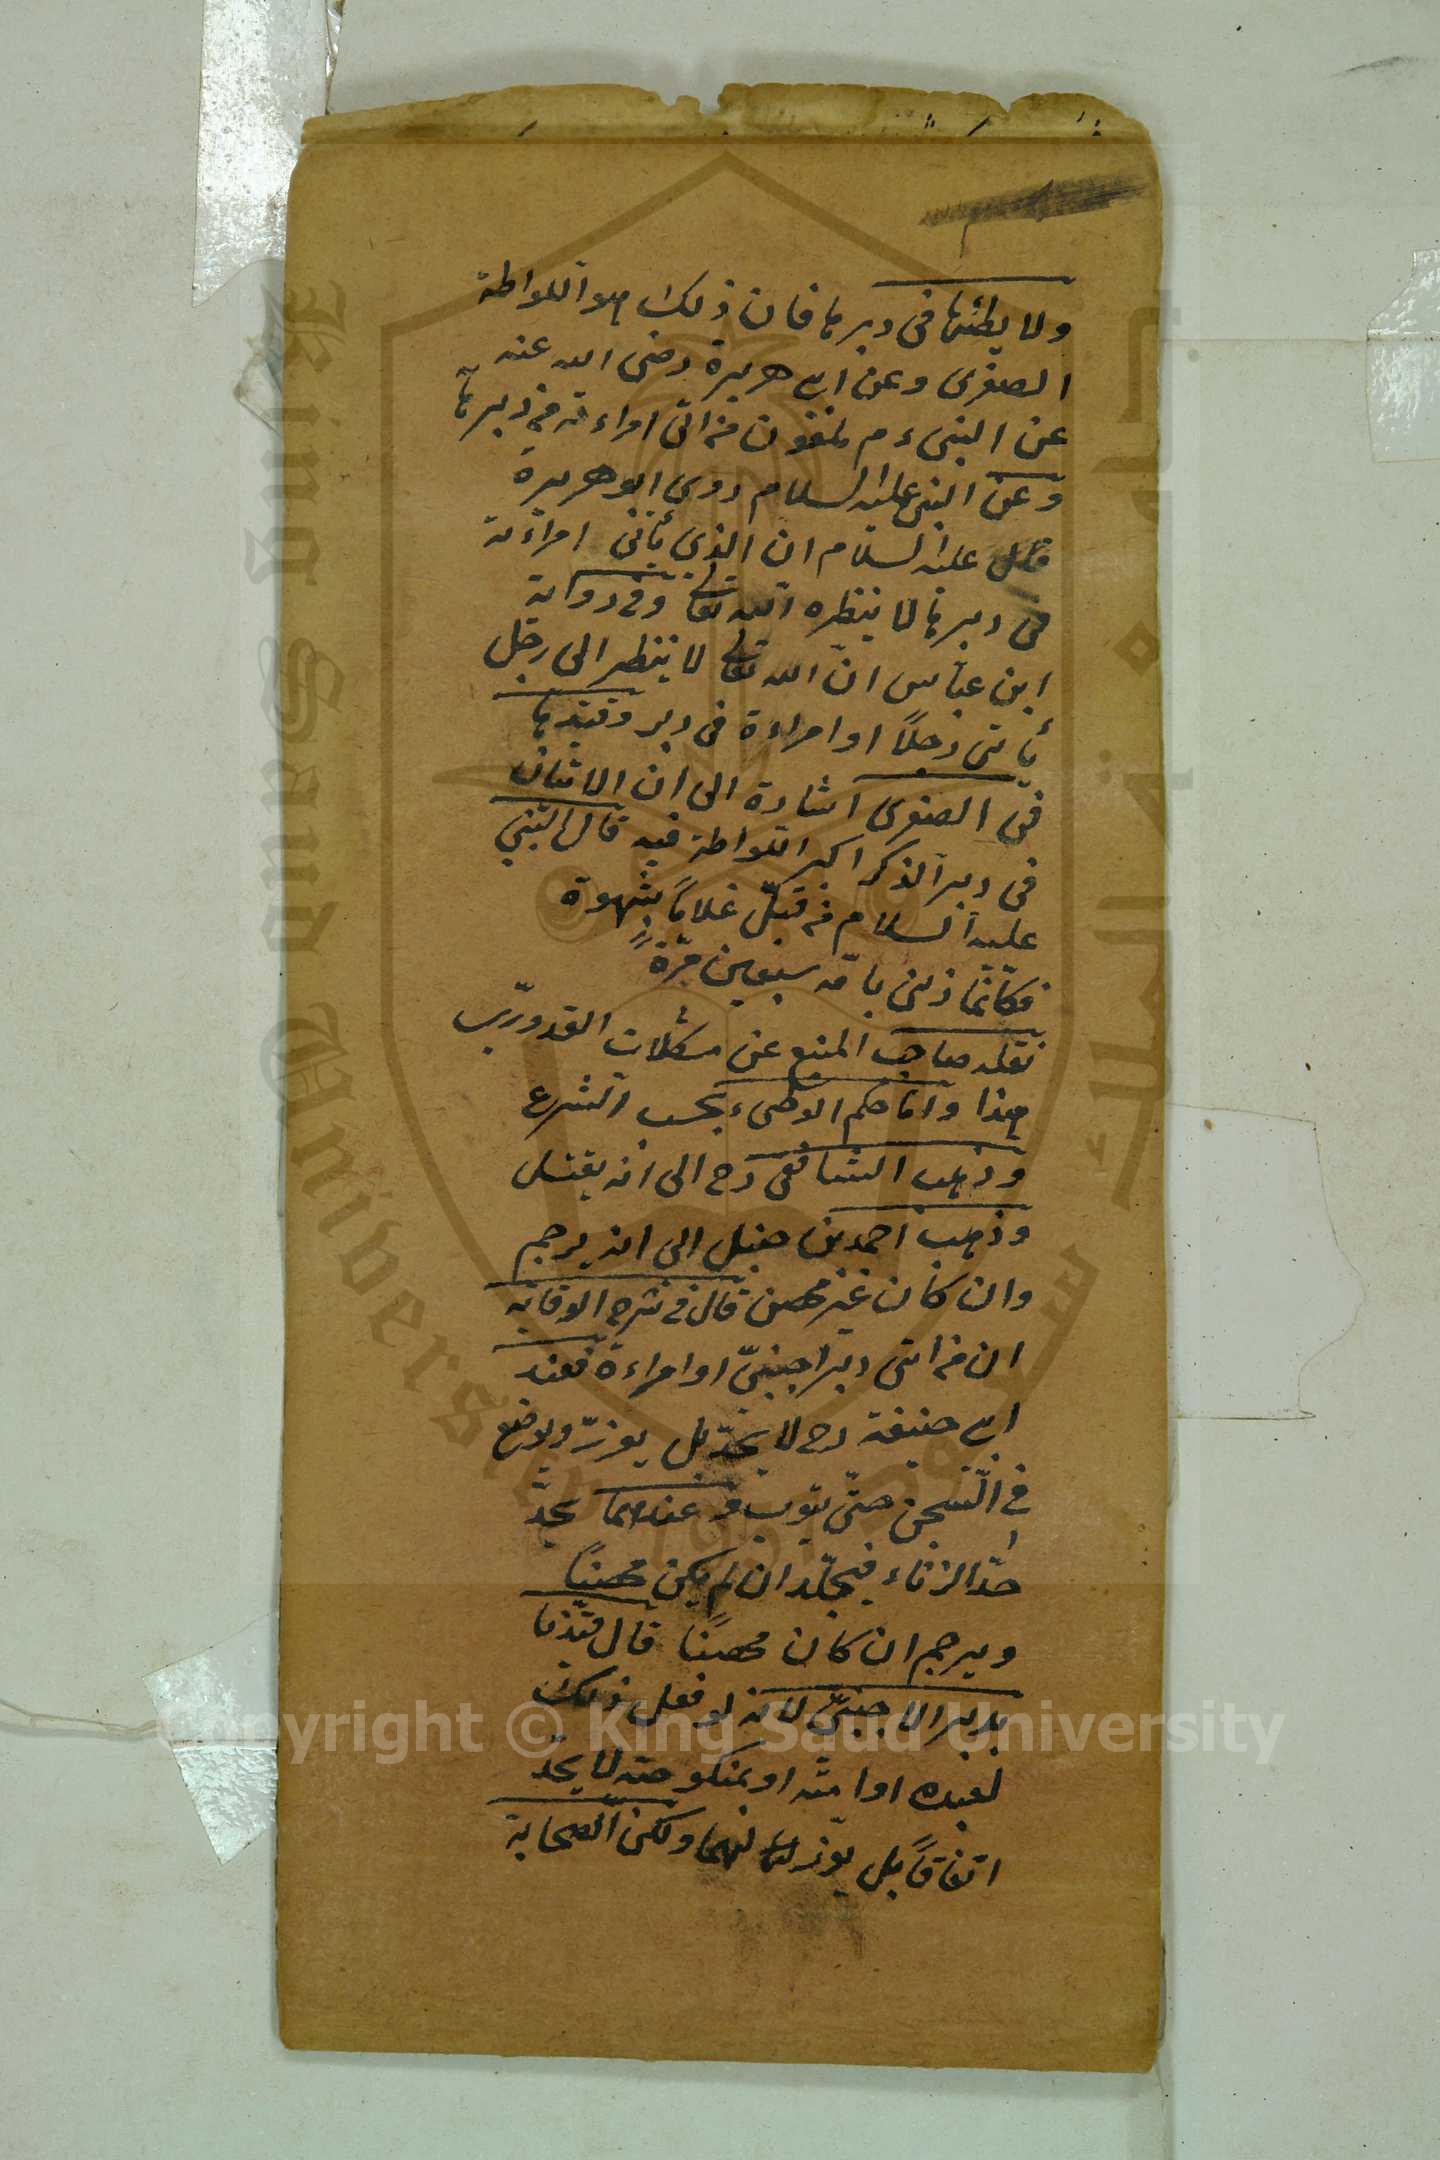 ولا يطئها في دبرها فان ذلك هو اللواطة
الصغرى وعن ابي هريرة رضى الله عنه
عن النبي ءم ملعون من اتى امراءته في دبرها
وعن النبي عليه السلام روى ابو هريرة
قال عليه السلام ان الذى يأتى امراءته
في دبرها لا ينظره الله تعالى وفى رواية
ابن عباس انّ الله تعالى لا ينظر الى رجل
يأتى رجلاً او امراءة في دبر وقيدها
في الصغرى اشارة الى ان الاتيان
في دبر الذكر اكبر اللواطة فيه قال النبي
عليه السلام من قبّل غلاماً بشهوة
فكأنّما زنى بامّه سبعين مرّةً
نقله صاحب المنبع عن مشكلات القدورىّ
هذا وامّا حكم الوطىء بحسب الشرع
وذهب الشافعى رح الى انه يقتل
وذهب احمد بن حنبل الى انه يرجم
وان كان غير محصن قال في شرح الوقاية
ان من اتى دبر اجنبىّ او امراءة فعند
ابي حنيفة رح لا يحدّ بل يعزرّ ويودع
في السّجن حتّى يتوب وعندهما يحدّ
حدّ الزناء فيجلّد ان لم يكن محصنًا
ويرجم ان كان محصنًا قال قيّدنا
بدبر الاجنبىّ لانه لو فعل ذلك
لعبده او امته او بمنكوحته لا يحدّ
اتفاقاً بل يعزّر لهما ولكن الصحابة
Copyright © King Saud University
King Saud University
1957